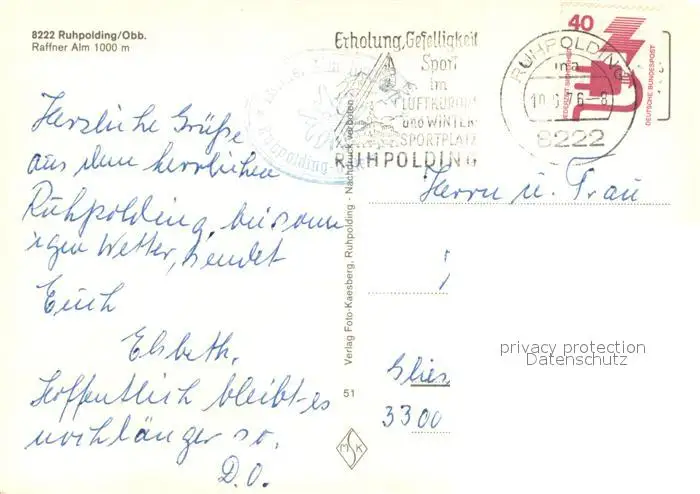 8222 Ruhpolding/Obb.
Raffner Alm 1000 m
Herzliche Grüße
aus dem herrlichen
Ruhpolding, bei sonn
igen Wetter, sendet
Euch
Elsbeth.
Hoffentlich bleibt es
noch länger so.
D.O.
Verlag Foto-Kaesberg, Ruhpolding - Nachdruck verboten
51
MSK
Erholung, Geselligkeit
Sport
im
LUFTKURORT
und WINTER
SPORTPLATZ
RUHPOLDING
RUHPOLDING
8222
40
JEDERZEIT SICHERHEIT
DEUTSCHE BUNDESPOST
Herrn u. Frau
Glies
3300
privacy protection
Datenschutz